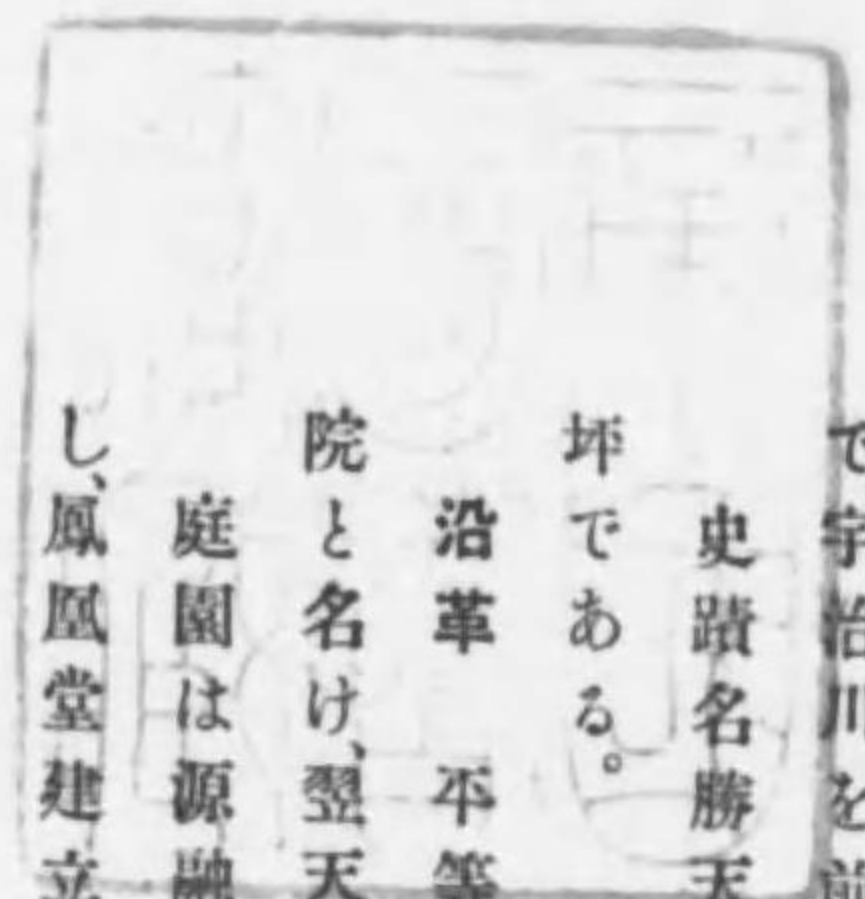 で宇治川を前
史蹟名勝天
坪である。
沿革　平等
院と名け、翌天
庭園は源融
し、鳳凰堂建立